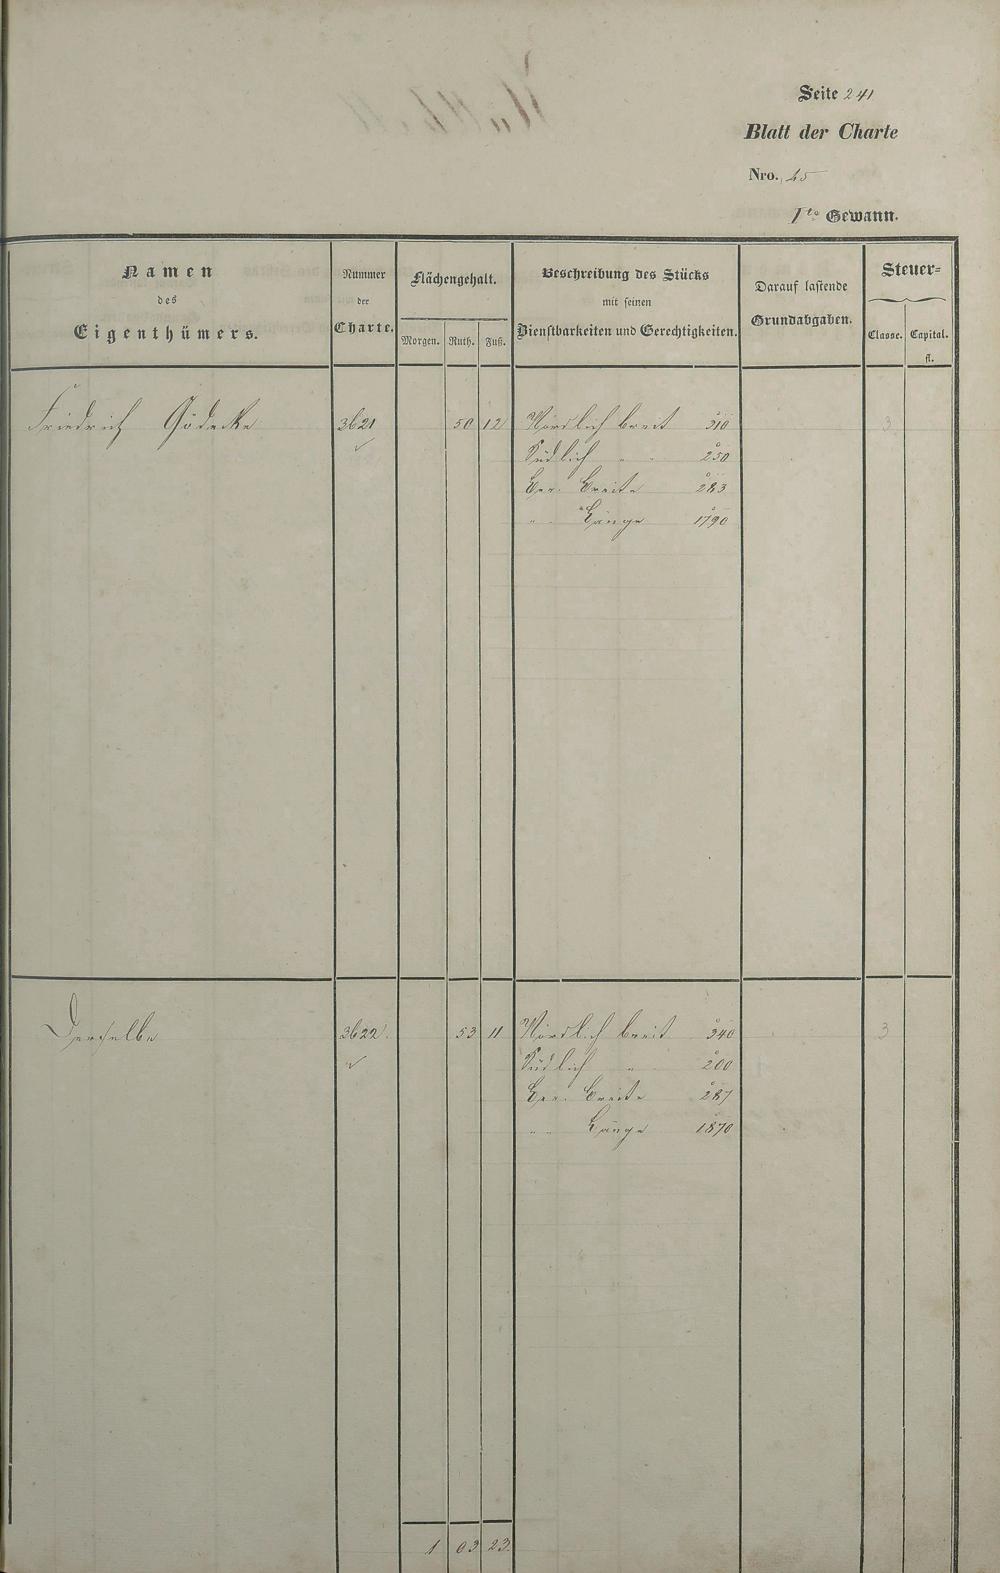 Seite 241
Blatt der Charte
Nro. 25
1te Gewann.
Namen des Eigenthümers.
Nummer der Charte.
Flächengehalt.
Morgen. Ruth. Fuß.
Beschreibung des Stücks mit seinen Dienstbarkeiten und Gerechtigkeiten.
Darauf lastende Grundabgaben.
Steuer=
Classe. Capital. fl.
Friedrich Gödecke 3621 50 12 Nördlich breit 310 3
Südlich " " 250
Ger. Breite 283
" " Länge 1790
Derselbe 3622. 53 11 Nördlich breit 340 3
Südlich " 200
Ger. Breite 287
" " Länge 1870
1 03 23.